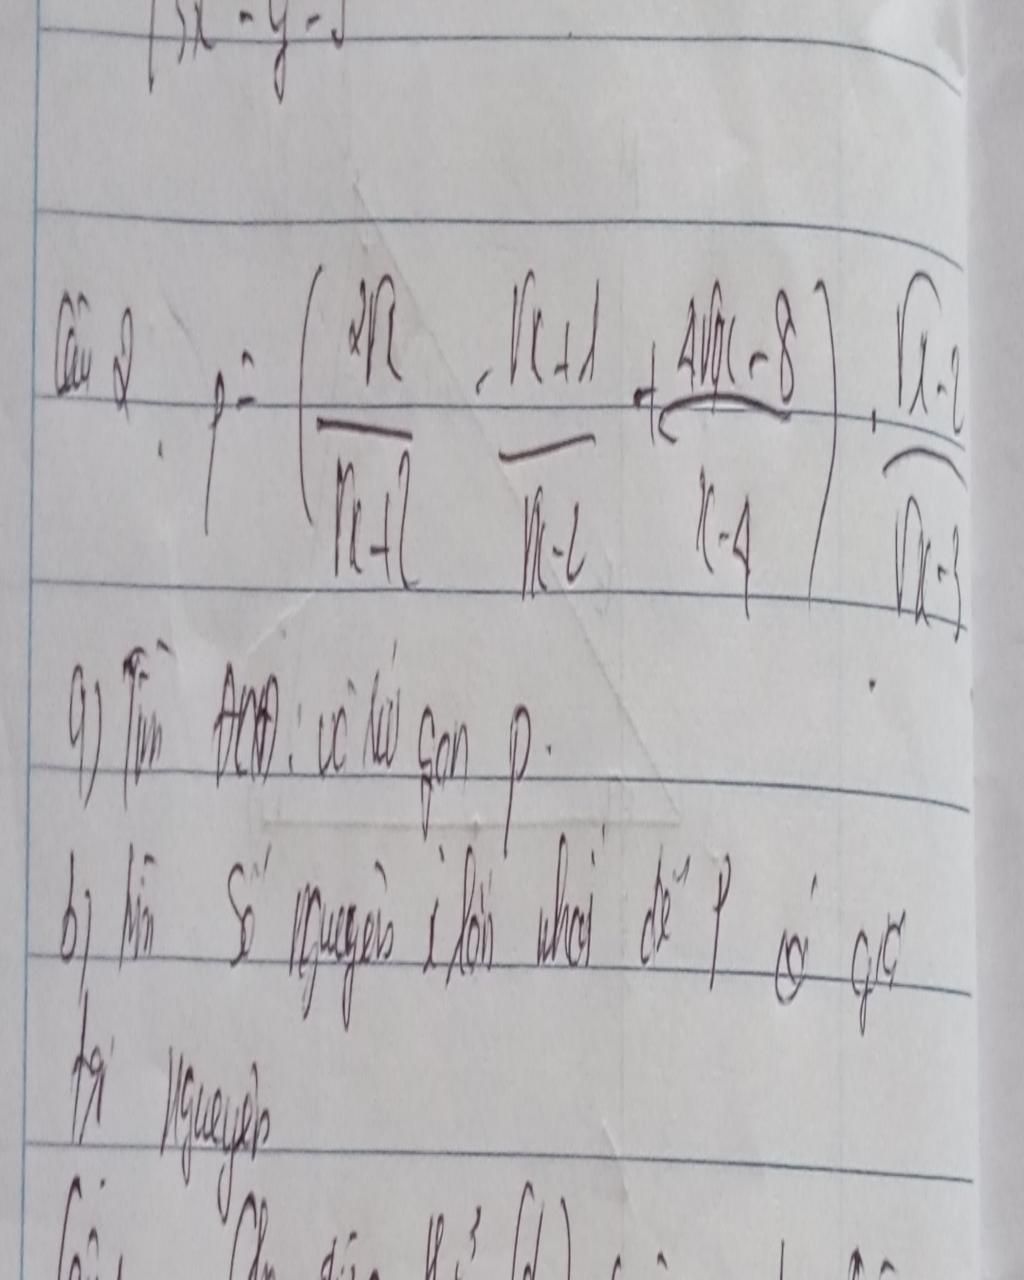 3x - y = 5
Câu 2. P = ( 2√x / √x+2 - √x+1 / √x-2 + 4√x-8 / x-4 ) . √x-2 / √x-3
a) Tìm ĐKXĐ. và rút gọn P.
b) tìm số nguyên x lớn nhất để P có giá
trị nguyên